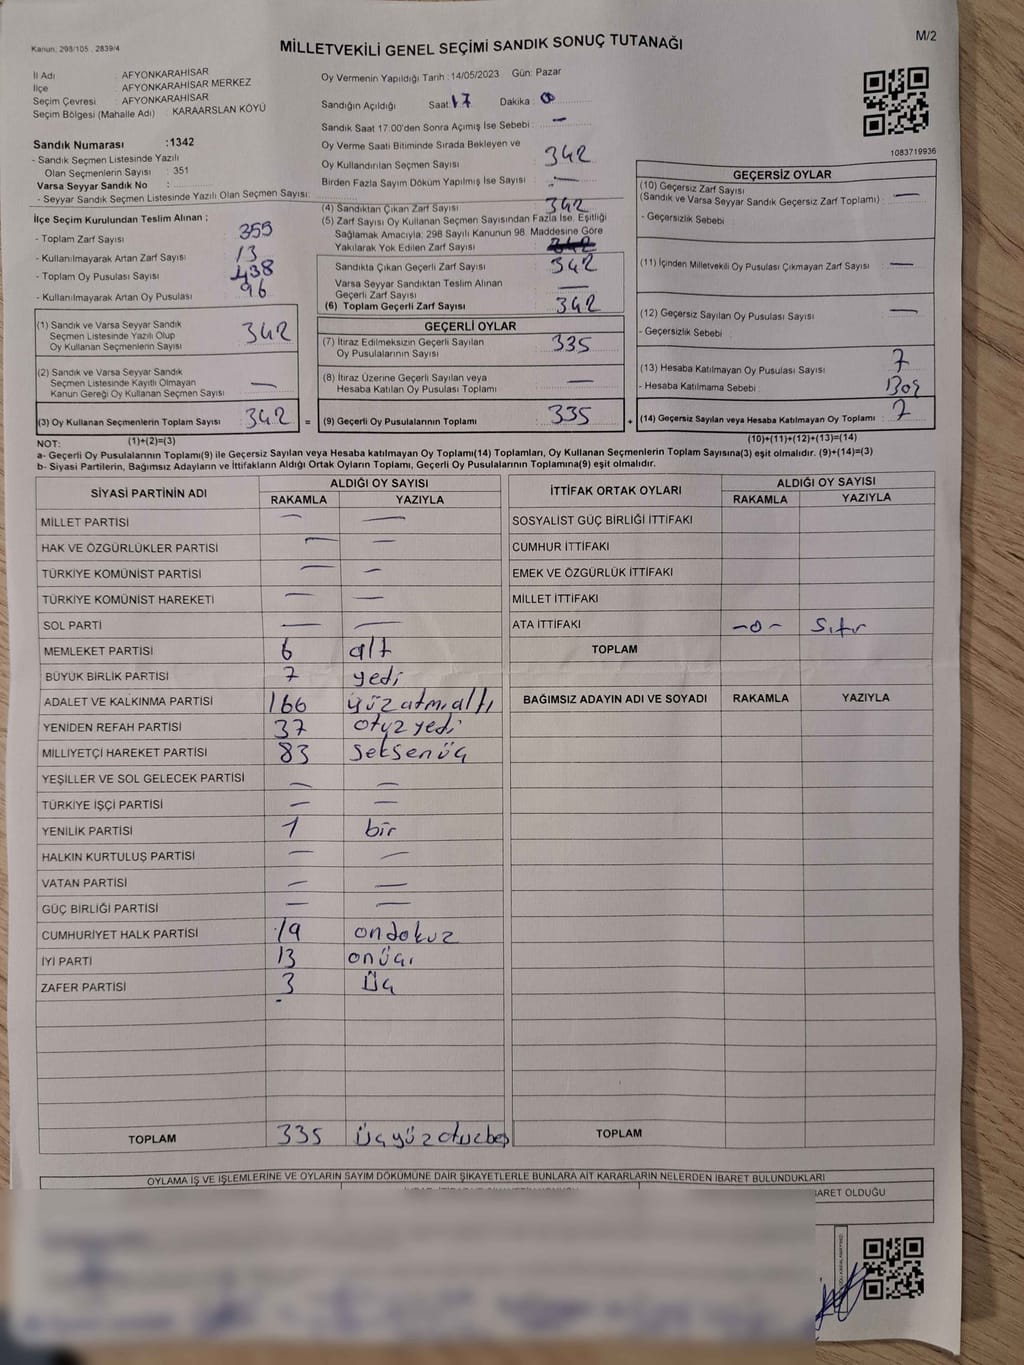 Kanun: 298/105 , 2839/4
MİLLETVEKİLİ GENEL SEÇİMİ SANDIK SONUÇ TUTANAĞI
M/2
İl Adı : AFYONKARAHİSAR
İlçe : AFYONKARAHİSAR MERKEZ
Seçim Çevresi : AFYONKARAHİSAR
Seçim Bölgesi (Mahalle Adı) : KARAARSLAN KÖYÜ
Sandık Numarası :1342
- Sandık Seçmen Listesinde Yazılı
Olan Seçmenlerin Sayısı : 351
Varsa Seyyar Sandık No :
- Seyyar Sandık Seçmen Listesinde Yazılı Olan Seçmen Sayısı:
Oy Vermenin Yapıldığı Tarih : 14/05/2023 Gün: Pazar
Sandığın Açıldığı Saat: 17 Dakika : 00
Sandık Saat 17:00'den Sonra Açımış İse Sebebi : —
Oy Verme Saati Bitiminde Sırada Bekleyen ve
Oy Kullandırılan Seçmen Sayısı 342
Birden Fazla Sayım Döküm Yapılmış İse Sayısı : —
1083719936
İlçe Seçim Kurulundan Teslim Alınan ;
- Toplam Zarf Sayısı 355
- Kullanılmayarak Artan Zarf Sayısı 13
- Toplam Oy Pusulası Sayısı 438
- Kullanılmayarak Artan Oy Pusulası 96
(1) Sandık ve Varsa Seyyar Sandık
Seçmen Listesinde Yazılı Olup
Oy Kullanan Seçmenlerin Sayısı 342
(2) Sandık ve Varsa Seyyar Sandık
Seçmen Listesinde Kayıtlı Olmayan
Kanun Gereği Oy Kullanan Seçmen Sayısı —
(3) Oy Kullanan Seçmenlerin Toplam Sayısı 342 =
(4) Sandıktan Çıkan Zarf Sayısı 342
(5) Zarf Sayısı Oy Kullanan Seçmen Sayısından Fazla İse, Eşitliği
Sağlamak Amacıyla; 298 Sayılı Kanunun 98. Maddesine Göre
Yakılarak Yok Edilen Zarf Sayısı
Sandıkta Çıkan Geçerli Zarf Sayısı 342
Varsa Seyyar Sandıktan Teslim Alınan
Geçerli Zarf Sayısı —
(6) Toplam Geçerli Zarf Sayısı 342
GEÇERLİ OYLAR
(7) İtiraz Edilmeksizin Geçerli Sayılan
Oy Pusulalarının Sayısı 335
(8) İtiraz Üzerine Geçerli Sayılan veya
Hesaba Katılan Oy Pusulası Toplamı —
(9) Geçerli Oy Pusulalarının Toplamı 335 +
GEÇERSİZ OYLAR
(10) Geçersiz Zarf Sayısı
(Sandık ve Varsa Seyyar Sandık Geçersiz Zarf Toplamı) : —
- Geçersizlik Sebebi
(11) İçinden Milletvekili Oy Pusulası Çıkmayan Zarf Sayısı : —
(12) Geçersiz Sayılan Oy Pusulası Sayısı : —
- Geçersizlik Sebebi
(13) Hesaba Katılmayan Oy Pusulası Sayısı : 7
- Hesaba Katılmama Sebebi : Boş
(14) Geçersiz Sayılan veya Hesaba Katılmayan Oy Toplamı : 7
NOT: (1)+(2)=(3)
(10)+(11)+(12)+(13)=(14)
a- Geçerli Oy Pusulalarının Toplamı(9) ile Geçersiz Sayılan veya Hesaba katılmayan Oy Toplamı(14) Toplamları, Oy Kullanan Seçmenlerin Toplam Sayısına(3) eşit olmalıdır. (9)+(14)=(3)
b- Siyasi Partilerin, Bağımsız Adayların ve İttifakların Aldığı Ortak Oyların Toplamı, Geçerli Oy Pusulalarının Toplamına(9) eşit olmalıdır.
SİYASİ PARTİNİN ADI ALDIĞI OY SAYISI
RAKAMLA YAZIYLA
MİLLET PARTİSİ — —
HAK VE ÖZGÜRLÜKLER PARTİSİ — —
TÜRKİYE KOMÜNİST PARTİSİ — —
TÜRKİYE KOMÜNİST HAREKETİ — —
SOL PARTİ — —
MEMLEKET PARTİSİ 6 altı
BÜYÜK BİRLİK PARTİSİ 7 yedi
ADALET VE KALKINMA PARTİSİ 166 yüzatmıaltı
YENİDEN REFAH PARTİSİ 37 otuz yedi
MİLLİYETÇİ HAREKET PARTİSİ 83 Seksenüç
YEŞİLLER VE SOL GELECEK PARTİSİ — —
TÜRKİYE İŞÇİ PARTİSİ — —
YENİLİK PARTİSİ 1 bir
HALKIN KURTULUŞ PARTİSİ — —
VATAN PARTİSİ — —
GÜÇ BİRLİĞİ PARTİSİ — —
CUMHURİYET HALK PARTİSİ 19 ondokuz
İYİ PARTİ 13 onüç
ZAFER PARTİSİ 3 Üç
TOPLAM 335 Üçyüzotuzbeş
İTTİFAK ORTAK OYLARI ALDIĞI OY SAYISI
RAKAMLA YAZIYLA
SOSYALİST GÜÇ BİRLİĞİ İTTİFAKI
CUMHUR İTTİFAKI
EMEK VE ÖZGÜRLÜK İTTİFAKI
MİLLET İTTİFAKI
ATA İTTİFAKI -0- Sıfır
TOPLAM
BAĞIMSIZ ADAYIN ADI VE SOYADI RAKAMLA YAZIYLA
TOPLAM
OYLAMA İŞ VE İŞLEMLERİNE VE OYLARIN SAYIM DÖKÜMÜNE DAİR ŞİKAYETLERLE BUNLARA AİT KARARLARIN NELERDEN İBARET BULUNDUKLARI
BARET OLDUĞU